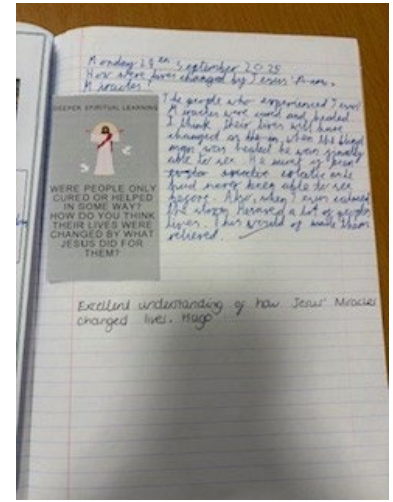 Monday 29th September 2025
How were lives changed by Jesus'
Miracles?
DEEPER SPIRITUAL LEARNING
WERE PEOPLE ONLY
CURED OR HELPED
IN SOME WAY?
HOW DO YOU THINK
THEIR LIVES WERE
CHANGED BY WHAT
JESUS DID FOR
THEM?
The people who experienced Jesus'
Miracles were cured and healed.
I think their lives will have
changed as when the blind
man was healed he was finally
able to see. He must of been
ecstatic as he
had never been able to see
before. Also, when Jesus calmed
the storm he saved a lot of peoples
lives. This would of made them
relieved.
Excellent understanding of how Jesus' Miracles
changed lives. Hugo